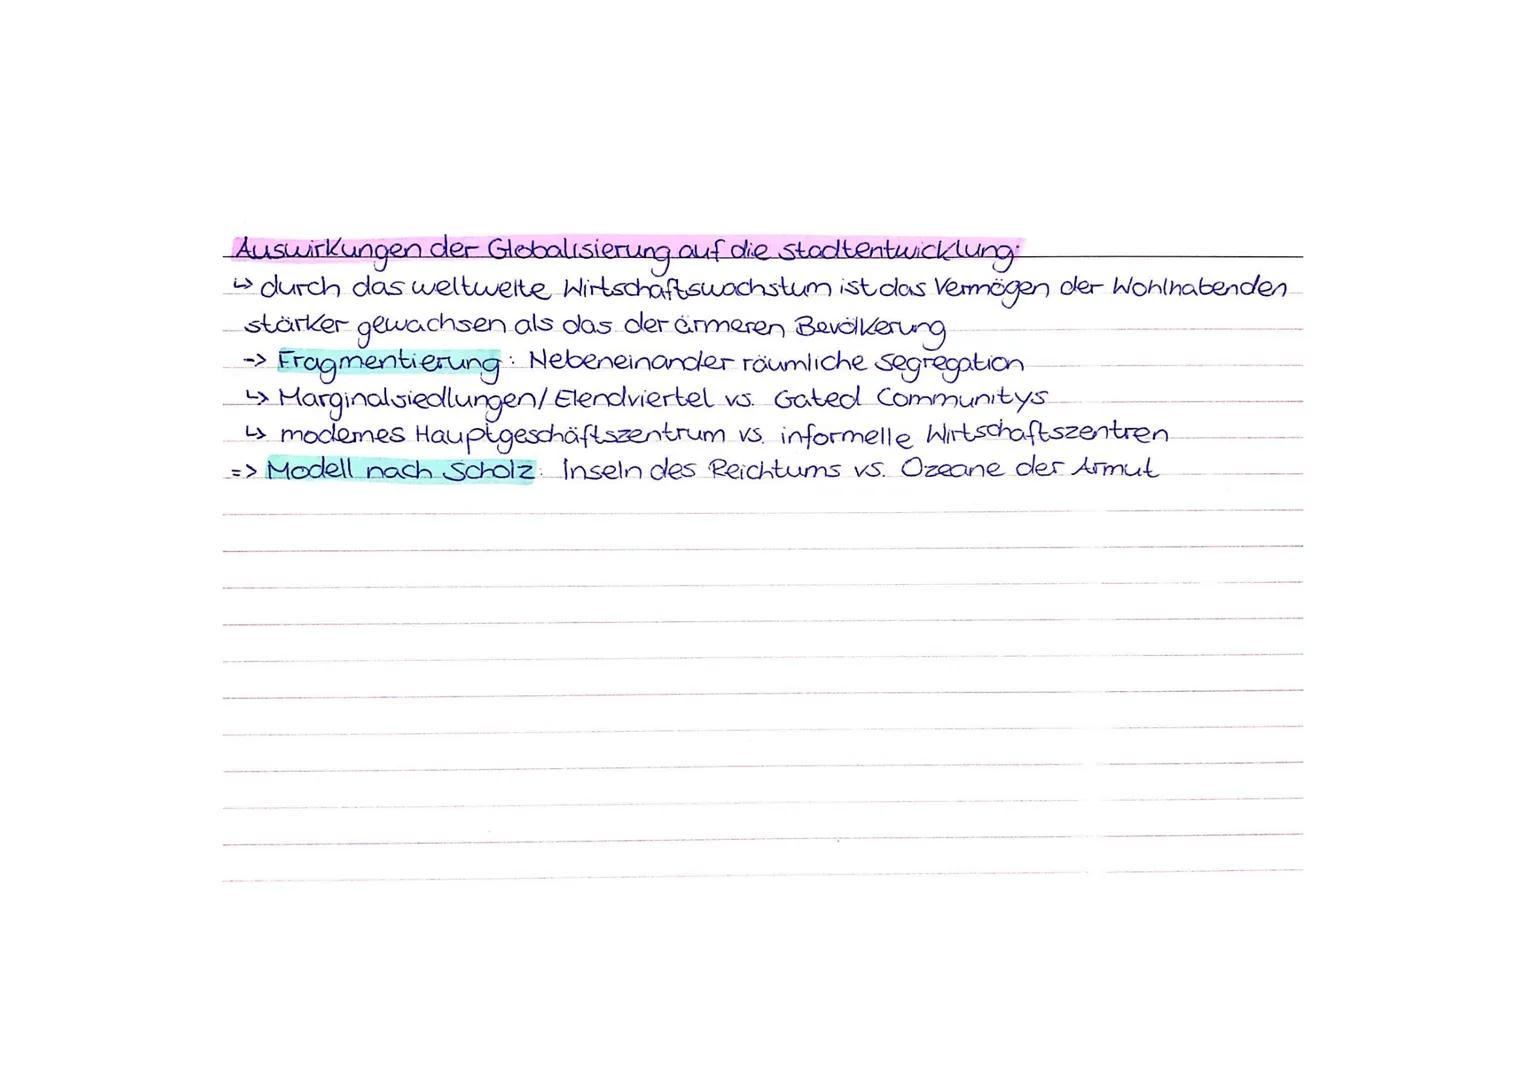 Auswirkungen der Globalisierung auf die Stadtentwicklung:
↳ durch das weltweite Wirtschaftswachstum ist das Vermögen der Wohlhabenden
stärker gewachsen als das der ärmeren Bevölkerung
-> Fragmentierung: Nebeneinander räumliche Segregation
↳ Marginalsiedlungen/Elendviertel vs. Gated Communitys
↳ modernes Hauptgeschäftszentrum vs. informelle Wirtschaftszentren
=> Modell nach Scholz: Inseln des Reichtums vs. Ozeane der Armut